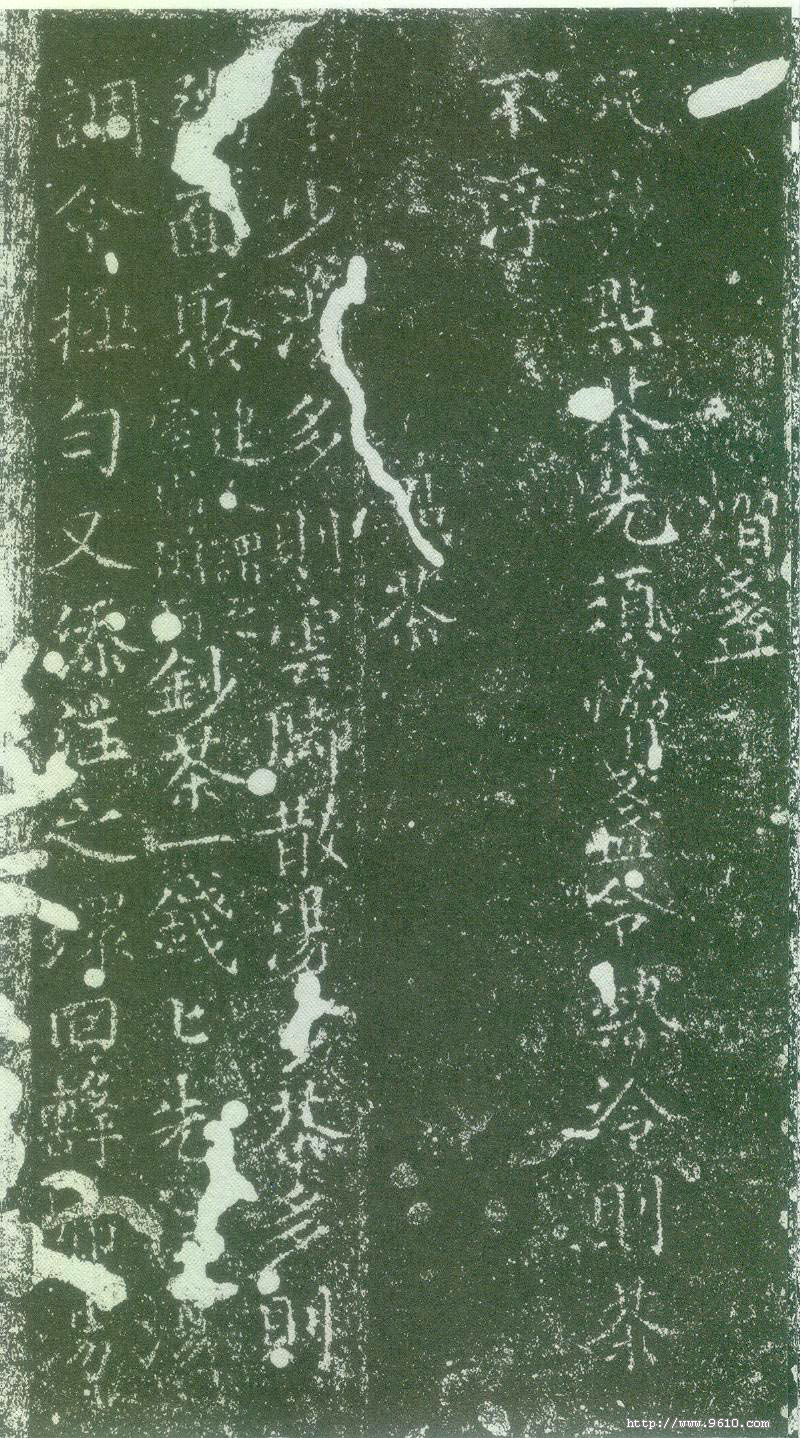 熁盞
凡欲點茶先須熁盞令熱冷則茶
不浮
點茶
茶少湯多則雲脚散湯少茶多則
粥面聚建人謂之雲脚粥面鈔茶一錢匕先湯
調令極勻又添注之環回擊拂湯
http://www.9610.com